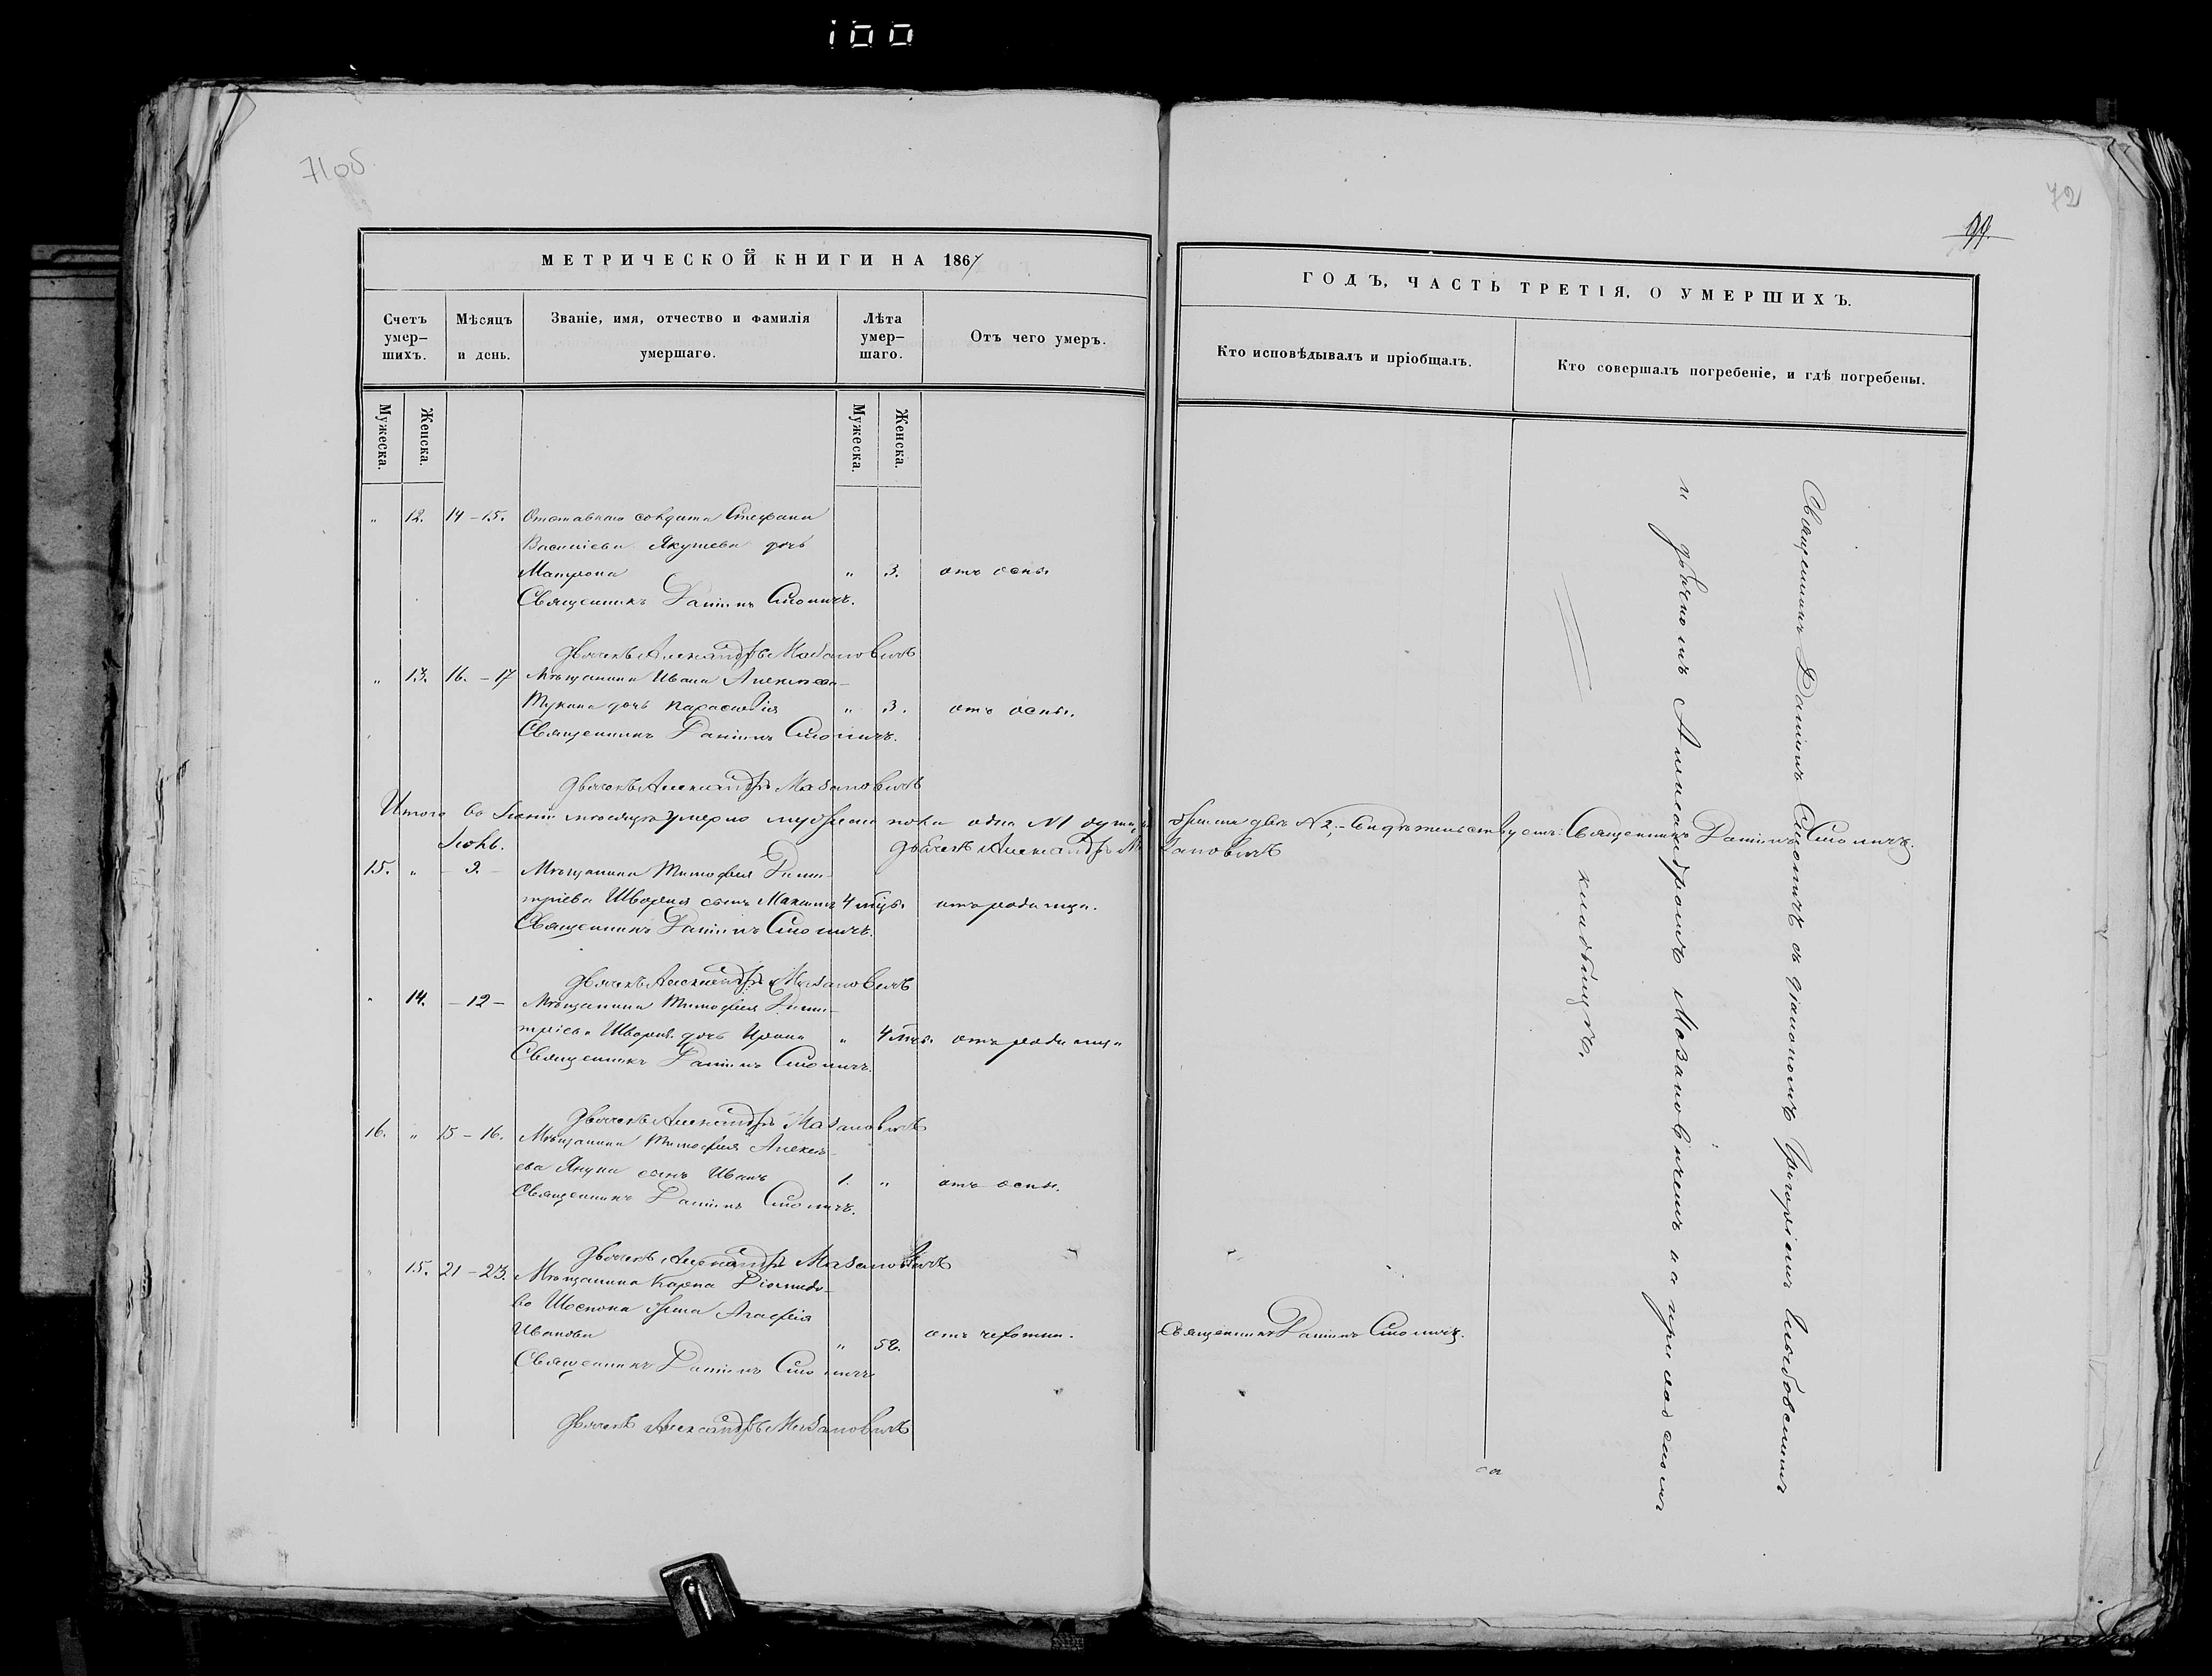 100
71об
72
99.
МЕТРИЧЕСКОЙ КНИГИ НА 1867
ГОДЪ, ЧАСТЬ ТРЕТІЯ, О УМЕРШИХЪ.
Счетъ умер–шихъ.
Мѣсяцъ и день.
Званіе, имя, отчество и фамилія умершаго.
Лѣта умер–шаго.
Отъ чего умеръ.
Кто исповѣдывалъ и пріобщалъ.
Кто совершалъ погребеніе, и гдѣ погребены.
Мужеска.
Женска.
Мужеска.
Женска.
" 12. 14 – 15. Отставнаго солдата Стефана
Васильева Якушева дочь
Матрона " 3. отъ оспы
Священникъ Даніилъ Смоличъ.
Дьячекъ Александръ Мазановичъ
" 13. 16. – 17 Мѣщанина Ивана Алексѣева
дочь Параскевія " 3. отъ оспы.
Священникъ Даніилъ Смоличъ.
Дьячекъ Александръ Мазановичъ
Итого во мѣсяцѣ умерло мужеска пола одна №1 душа, женска двѣ №2. – Свидѣтельствуетъ: Священникъ Даніилъ Смоличъ.
Дьячекъ Александръ Мазановичъ
15. " – 3. – Мѣщанина Тимофея Дими–
тріева сынъ Максимъ 4 мѣся. отъ родимца.
Священникъ Даніилъ Смоличъ.
Дьячекъ Александръ Мазановичъ
" 14. – 12 – Мѣщанина Тимофея Дими–
тріева дочь Ирина " 4 мѣс. отъ родимца
Священникъ Даніилъ Смоличъ.
Дьячекъ Александръ Мазановичъ
16. " 15 – 16. Мѣщанина Тимофея Алексѣ–
ева сынъ Иванъ 1. " отъ оспы.
Священникъ Даніилъ Смоличъ.
Дьячекъ Александръ Мазановичъ
" 15. 21 – 23. Мѣщанина Карпа Діомидо–
ва жена Агафія
Иванова " 52. отъ чехотки. Священникъ Даніилъ Смоличъ.
Священникъ Даніилъ Смоличъ
Дьячекъ Александръ Мазановичъ
Священникъ Даніилъ Смоличъ съ діакономъ Григоріемъ
и дьячкомъ Александромъ Мазановичемъ на приходскомъ
кладбищѣ.